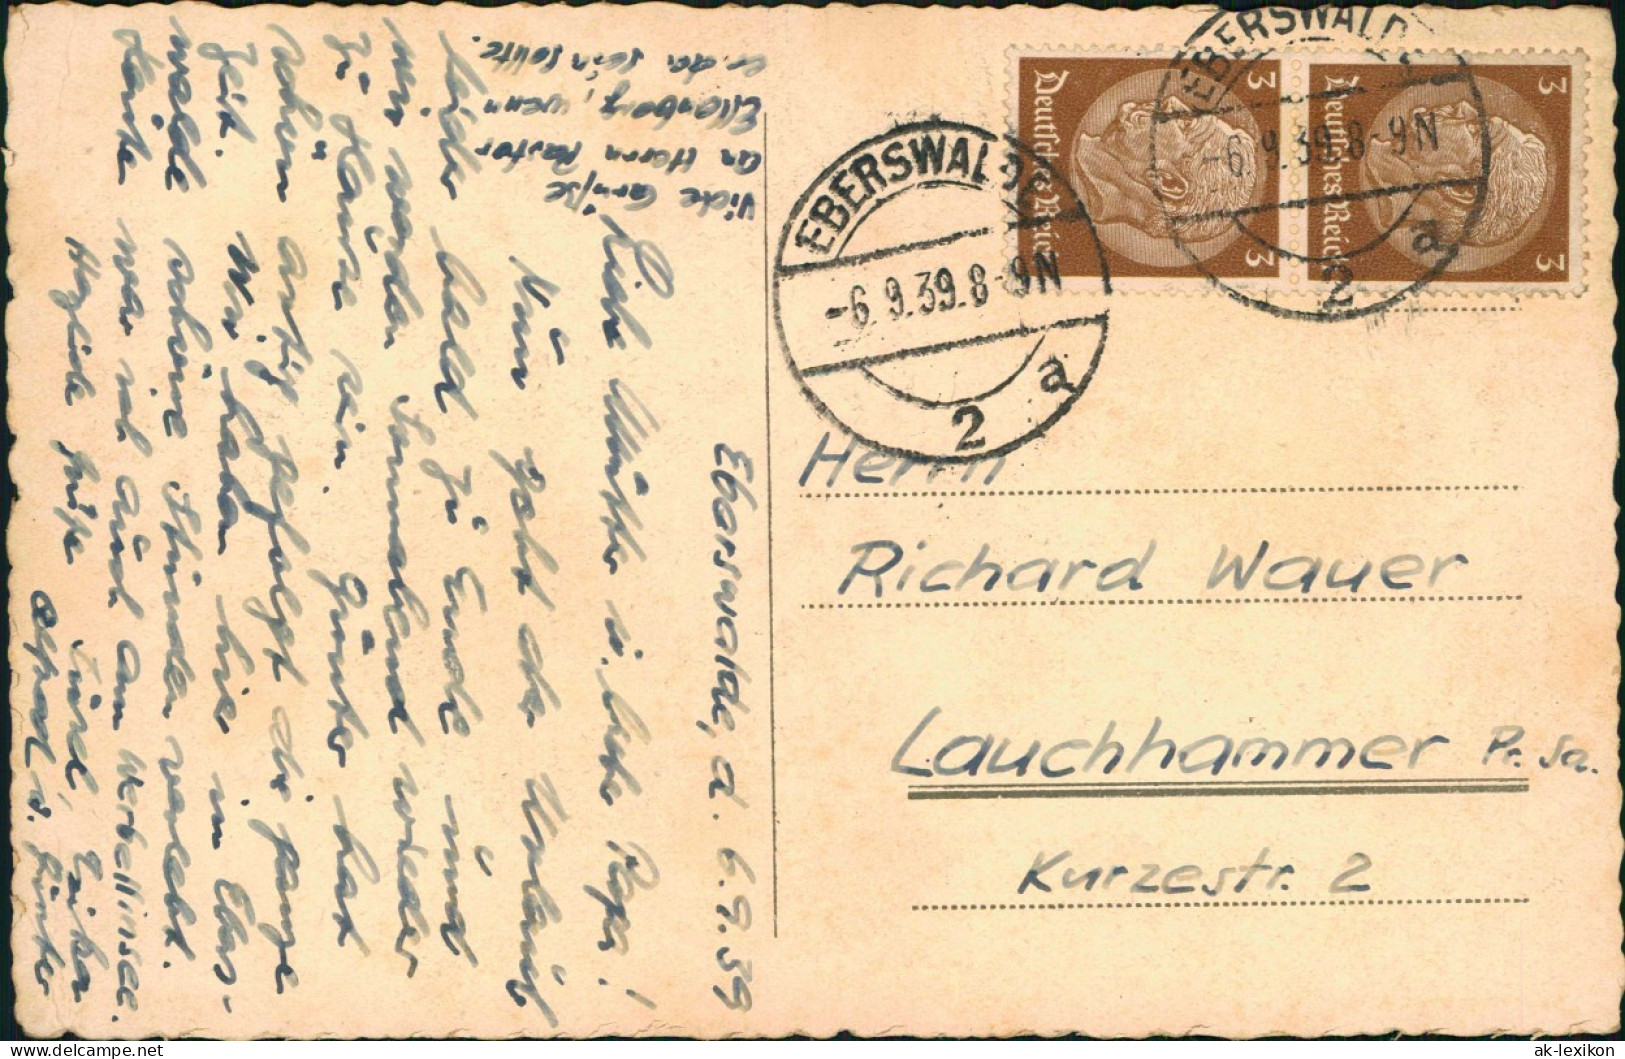 Eberswalde, d. 6.9.39
Liebe Mutter u. liebe Papa!
Nun geht der Urlaub
leider bald zu Ende und
wir werden Sonnabend wieder
zu Hause sein. Günter hat
schön artig gefolgt die ganze
Zeit. Wir haben hier in Ebers-
walde schöne Stunden verlebt.
Heute war ich auch am Werbellinsee.
Herzliche Grüße Eure Erika
Alfred u. Günter
Viele Grüße
an Herrn Pastor
Ellenberg, wenn
er da sein sollte.
EBERSWALDE
-6.9.39.8-9N
2 a
EBERSWALDE
-6.9.39.8-9N
2 a
Deutsches Reich
3
3
Deutsches Reich
3
3
Herrn
Richard Wauer
Lauchhammer Pr. Sa.
Kurzestr. 2
ak-lexikon